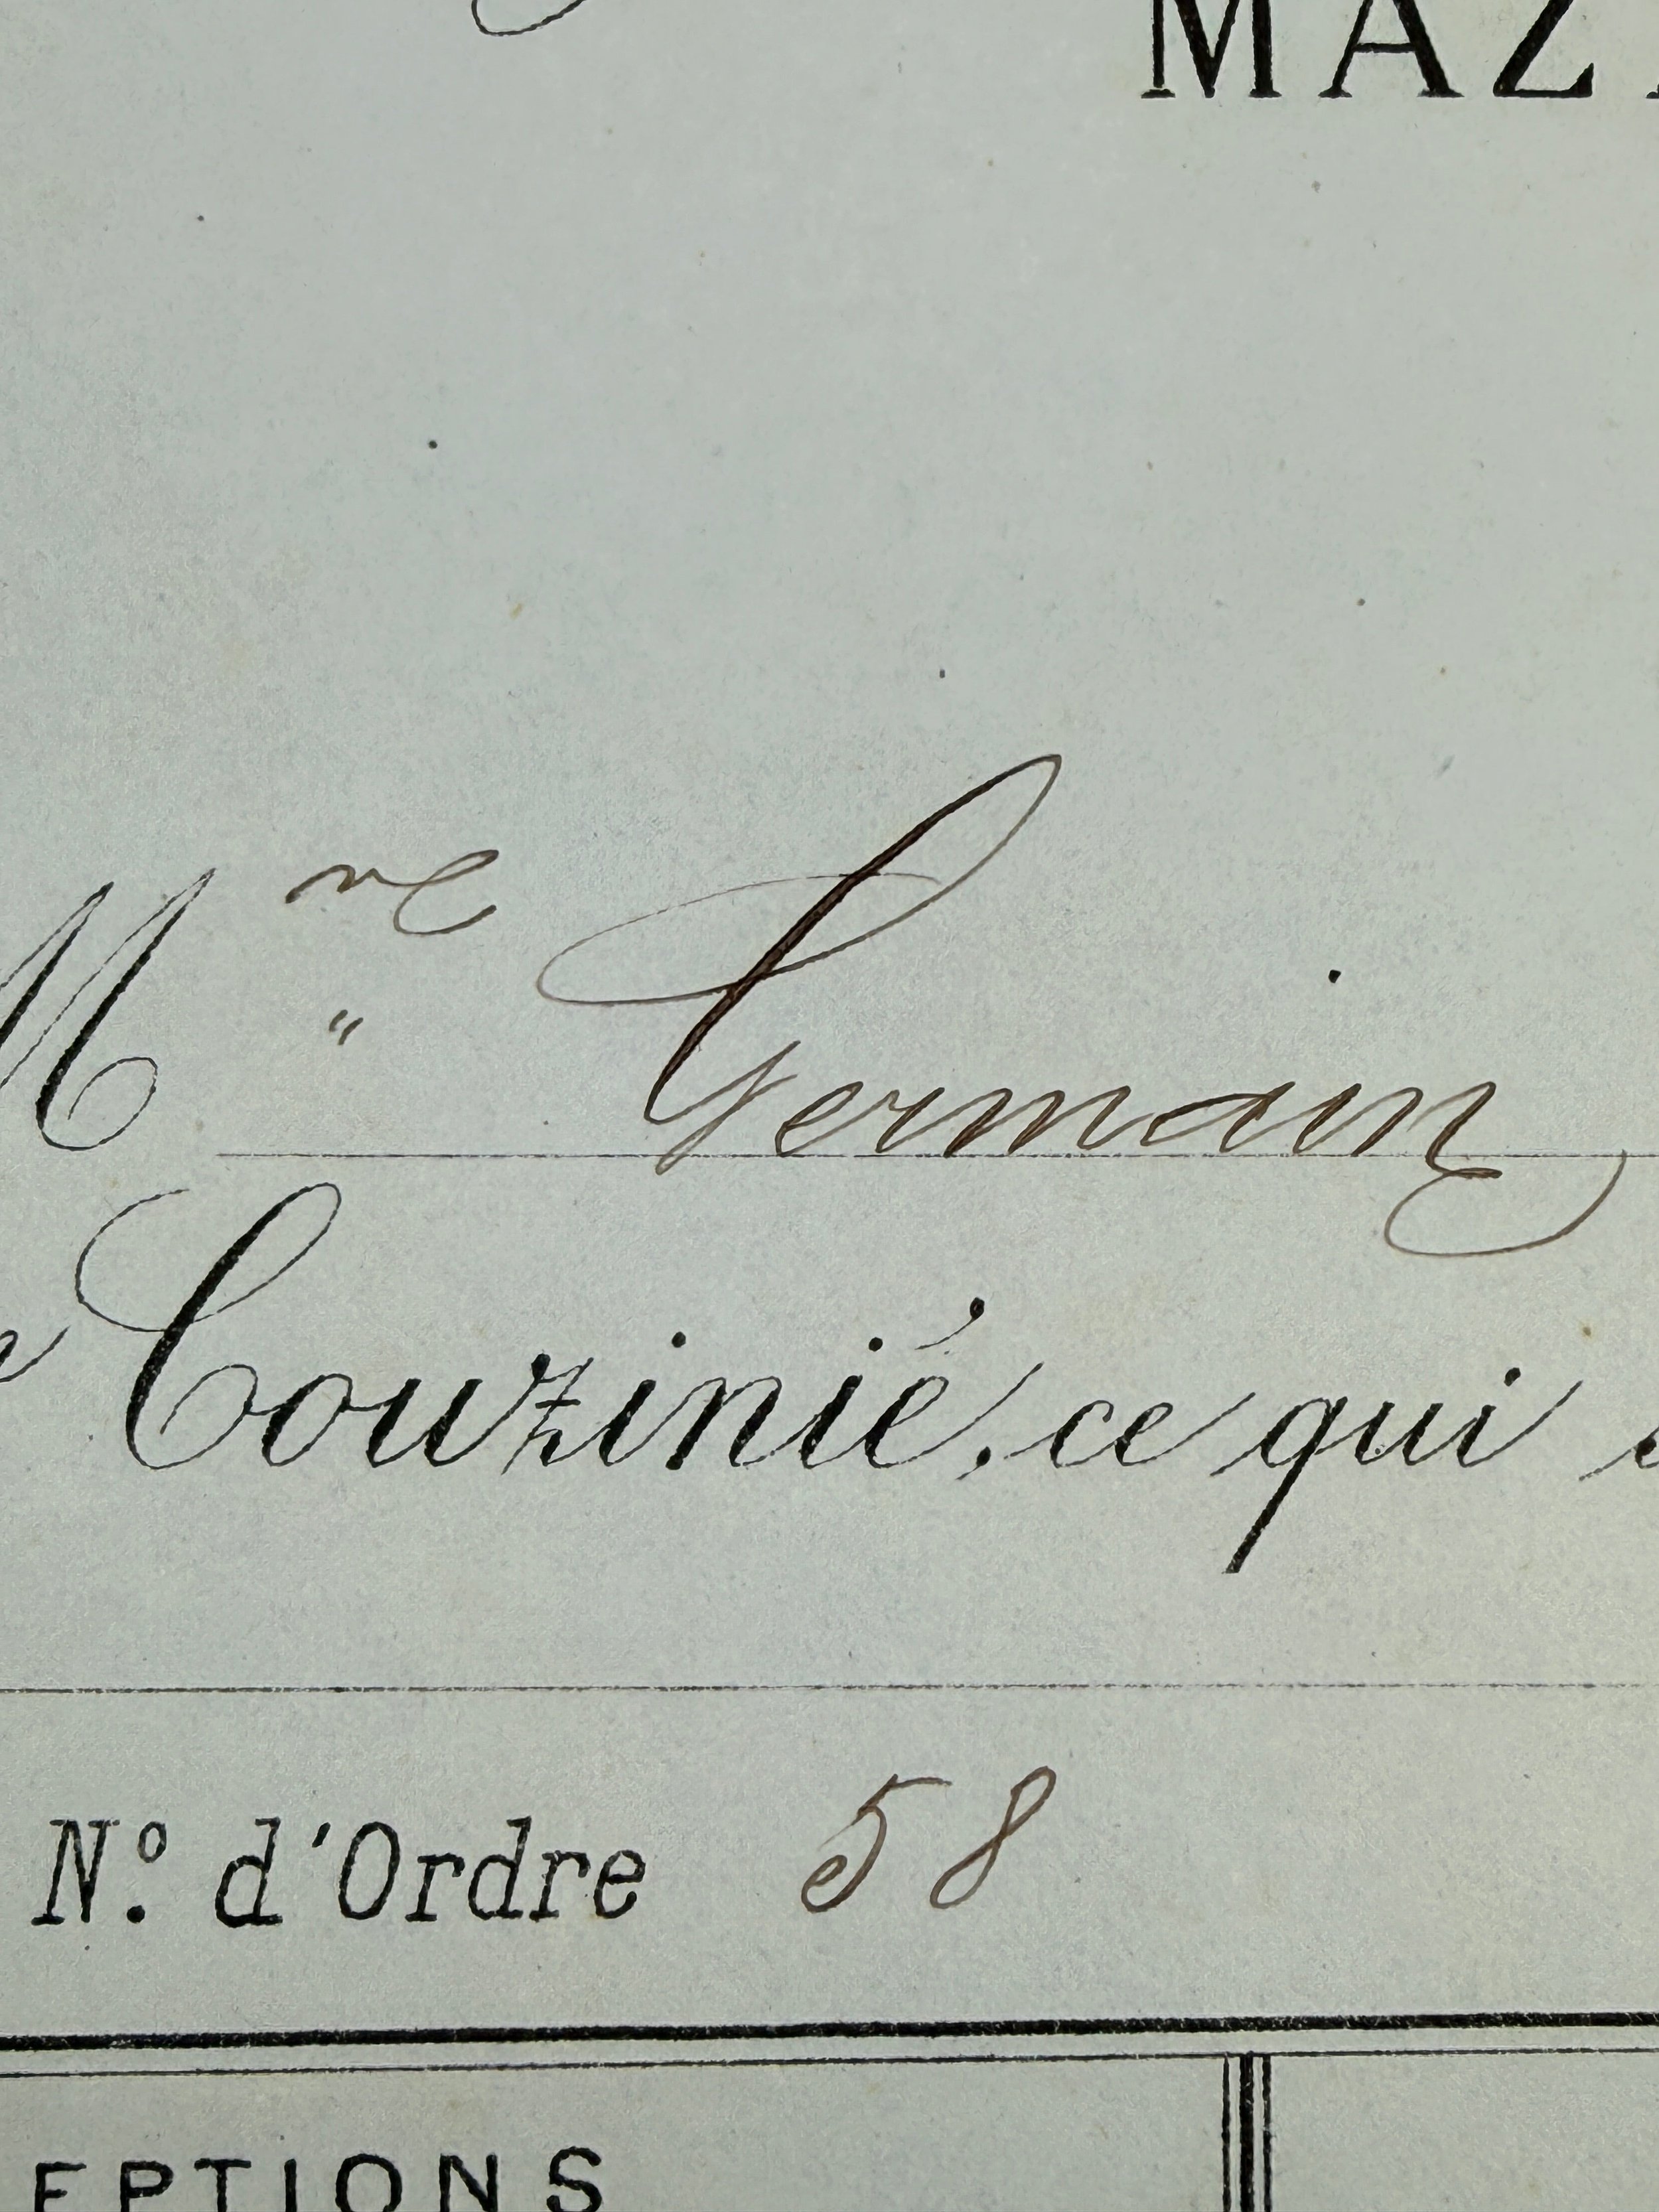 MAZ
Mre " Germain
Couzinié, ce qui
N.º d'Ordre 58
EPTIONS